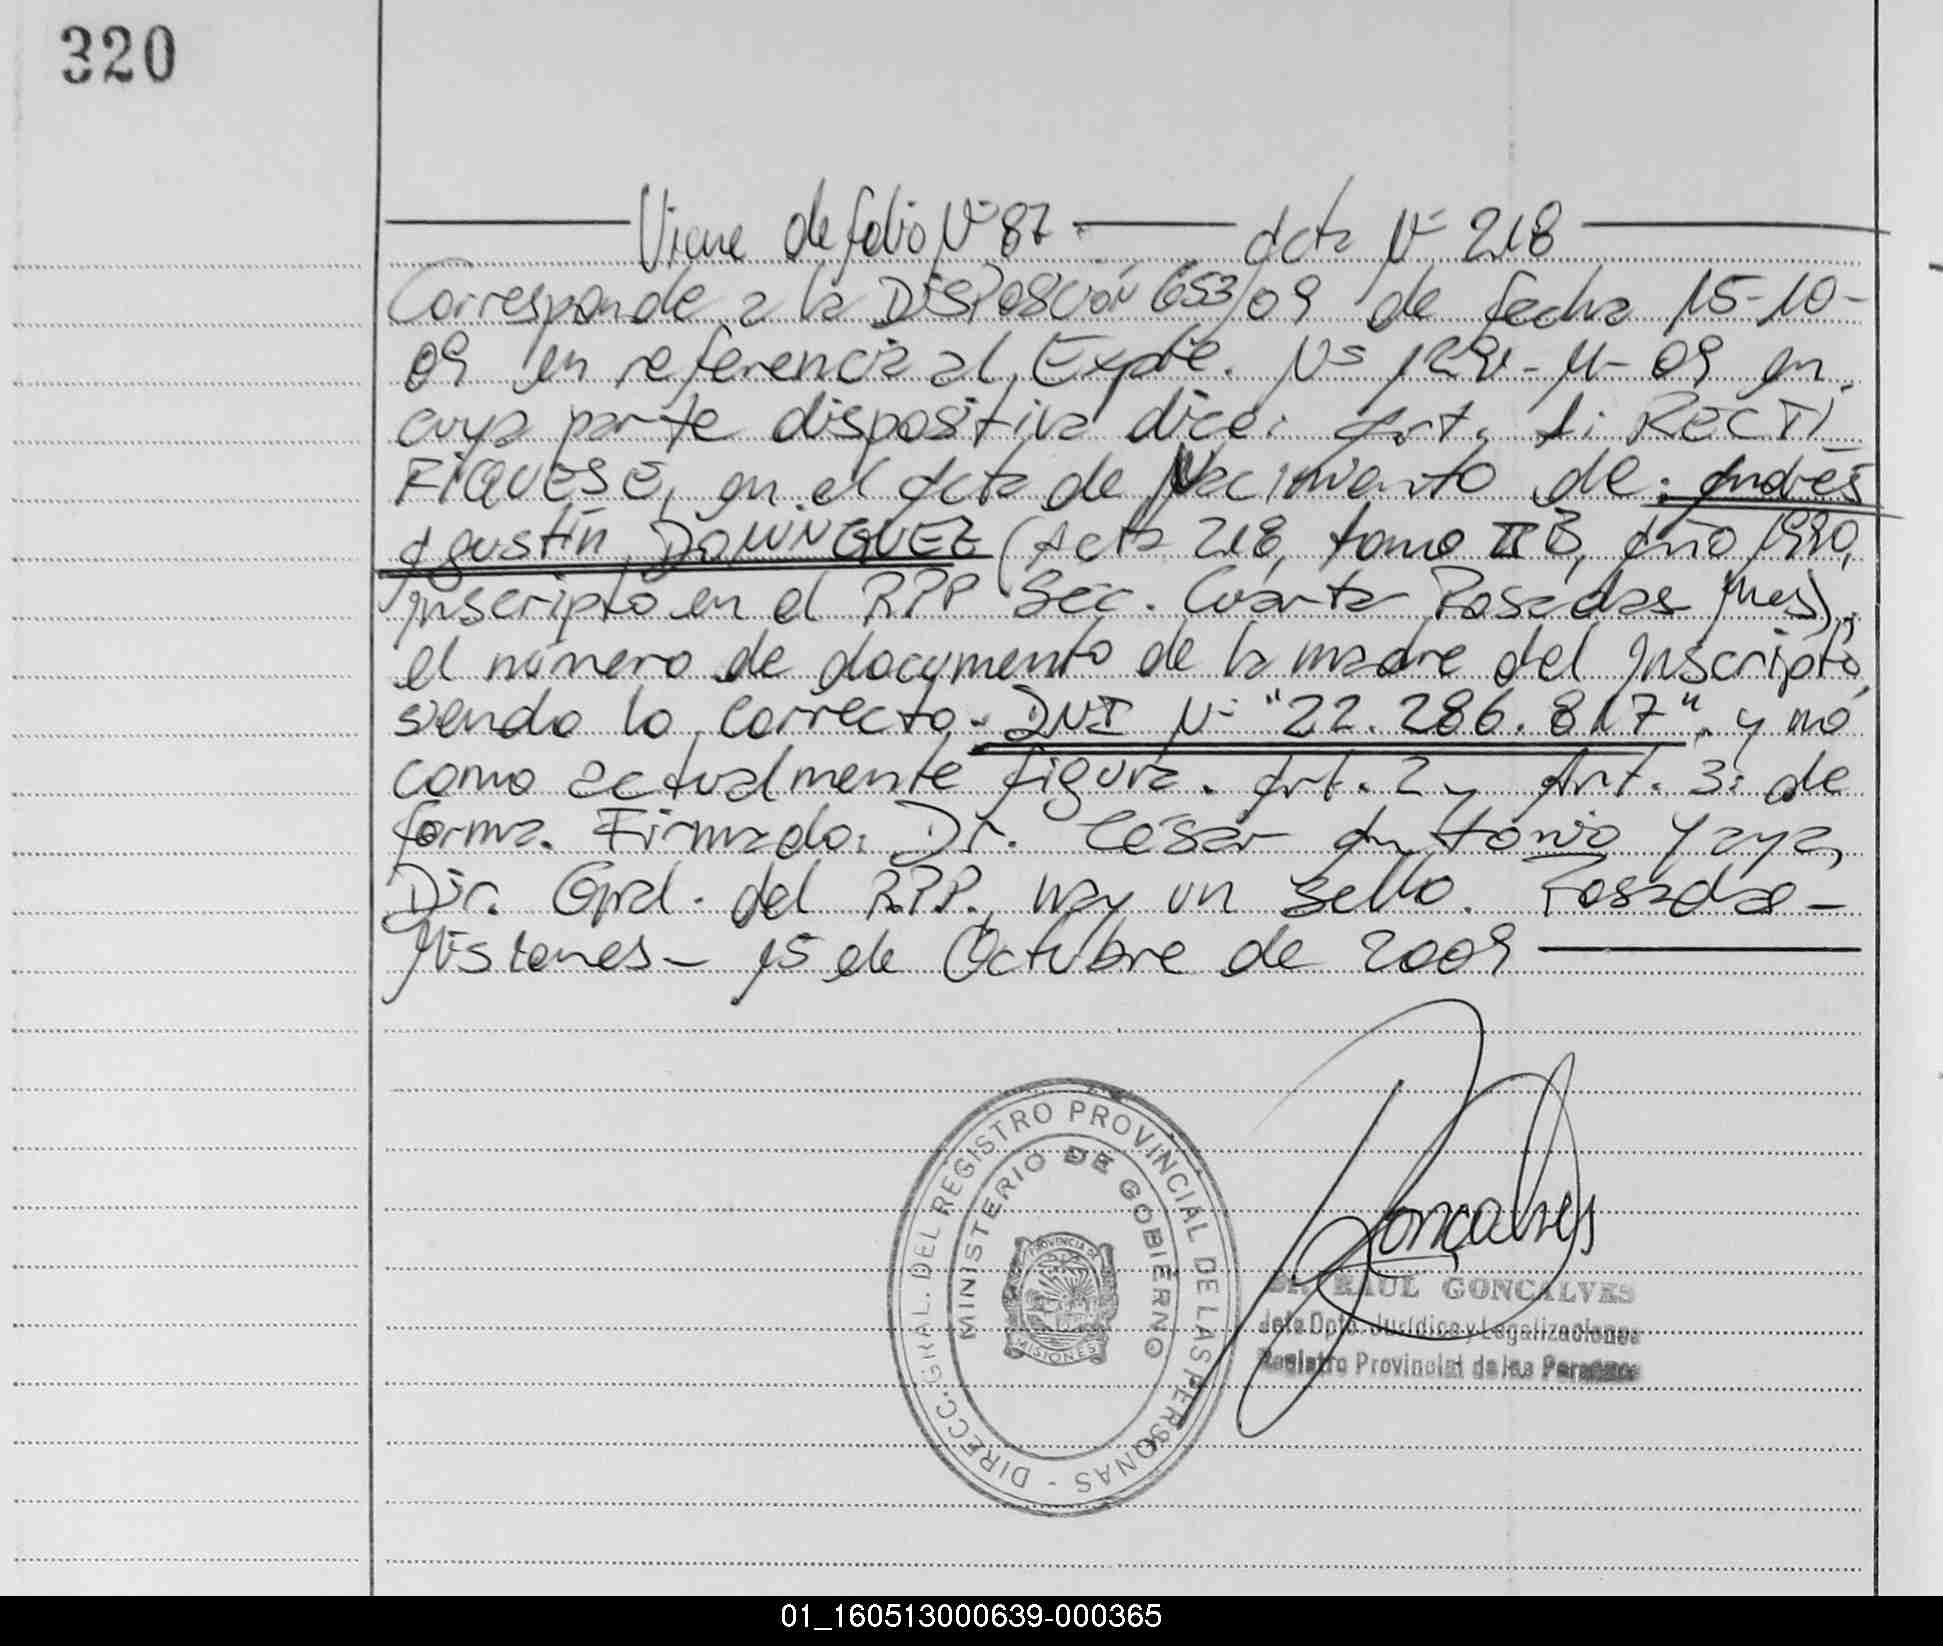 320
Viene de folio Nº 87 acta Nº 218
Corresponde a la DISPOSCIÓN 653/09 de fecha 15-10-
09 en referencia al Expte. Nº 1291-M-09 en
cuya parte dispositiva dice: Art. 1: RECTI
FIQUESE, en el Acta de Nacimiento de: Andrés
Agustín DOMINGUEZ (Acta 218, tomo II B, año 1990,
Inscripto en el RPP Sec. Cuarta Posadas Mnes),
el número de documento de la madre del Inscripto,
siendo lo correcto - DNI Nº "22.286.817". y no
como actualmente figura. Art. 2 y Art. 3: de
forma. Firmado: Dr. César Antonio Yaya,
Dir. Gral. del RPP., hay un sello. Posadas -
Misiones - 15 de Octubre de 2009
DIRECC. GRAL. DEL REGISTRO PROVINCIAL DE LAS PERSONAS -
MINISTERIO DE GOBIERNO
PROVINCIA DE
MISIONES
Gonçalves
DR. RAUL GONCALVES
Jefe Dpto. Jurídico y Legalizaciones
Registro Provincial de las Personas
01_160513000639-000365